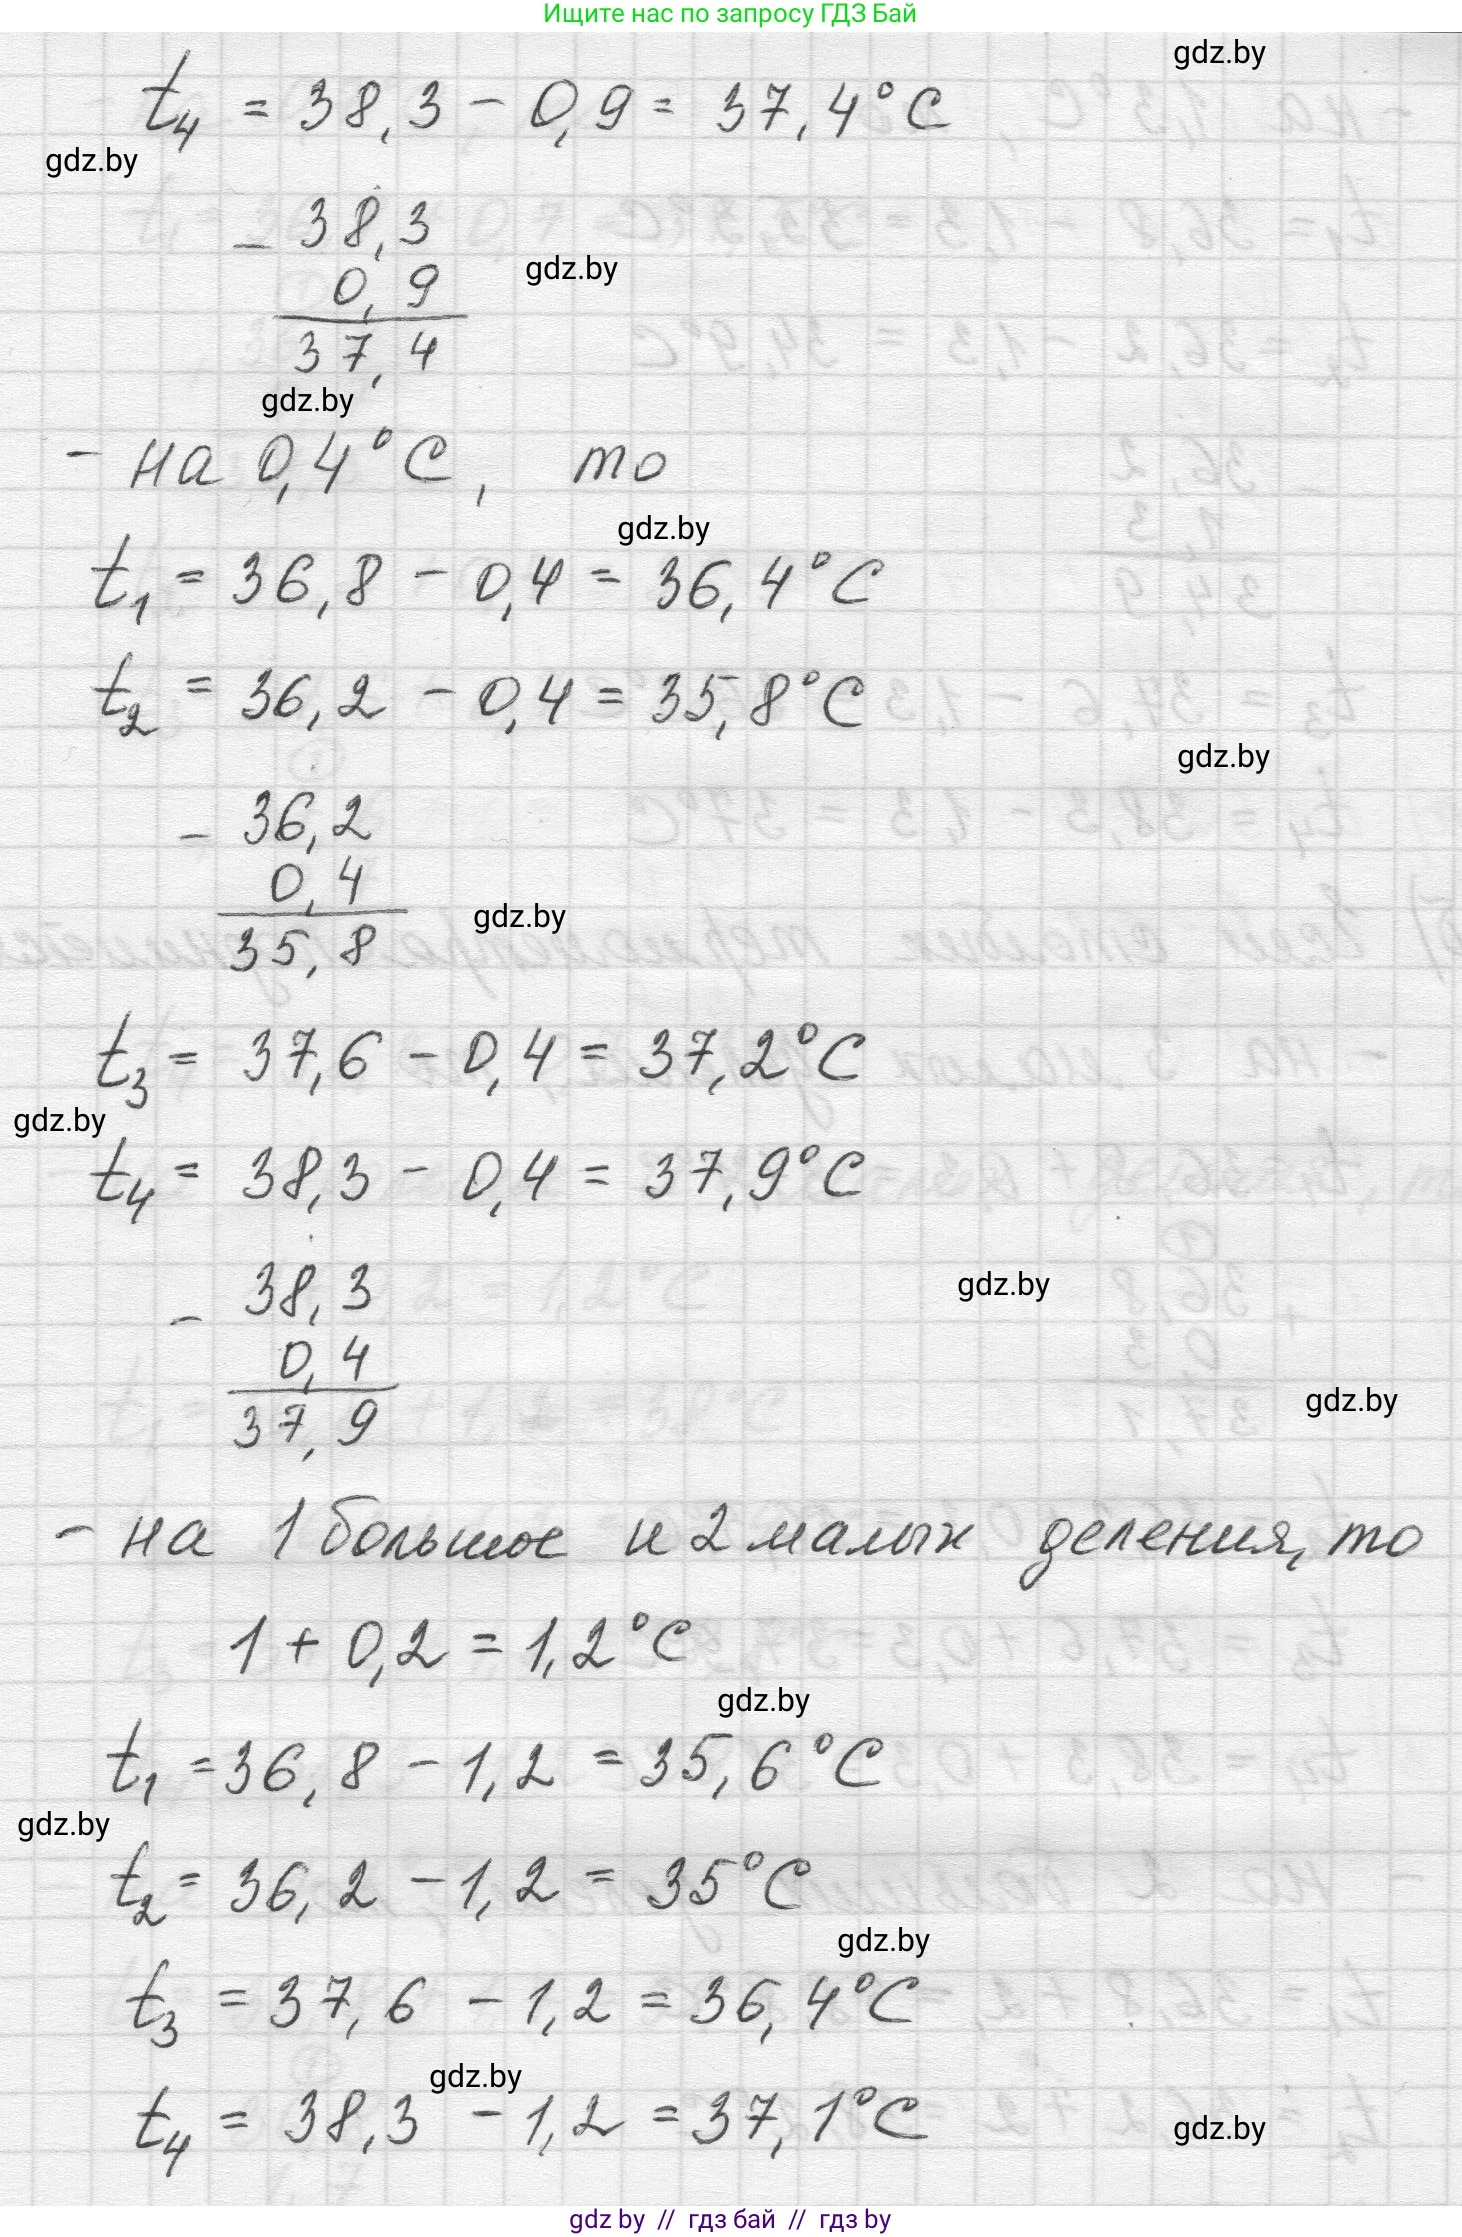 Ищите нас по запросу ГДЗ Бай
gdz.by
t₄ = 38,3 - 0,9 = 37,4°C
gdz.by
- 38,3
gdz.by
0,9
37,4
gdz.by
- на 0,4°C, то
gdz.by
t₁ = 36,8 - 0,4 = 36,4°C
t₂ = 36,2 - 0,4 = 35,8°C
gdz.by
- 36,2
0,4
gdz.by
35,8
t₃ = 37,6 - 0,4 = 37,2°C
gdz.by
t₄ = 38,3 - 0,4 = 37,9°C
- 38,3
gdz.by
0,4
gdz.by
37,9
- на 1 большое и 2 малых деления, то
1 + 0,2 = 1,2°C
gdz.by
t₁ = 36,8 - 1,2 = 35,6°C
gdz.by
t₂ = 36,2 - 1,2 = 35°C
gdz.by
t₃ = 37,6 - 1,2 = 36,4°C
gdz.by
t₄ = 38,3 - 1,2 = 37,1°C
gdz.by
gdz by // гдз бай // гдз by